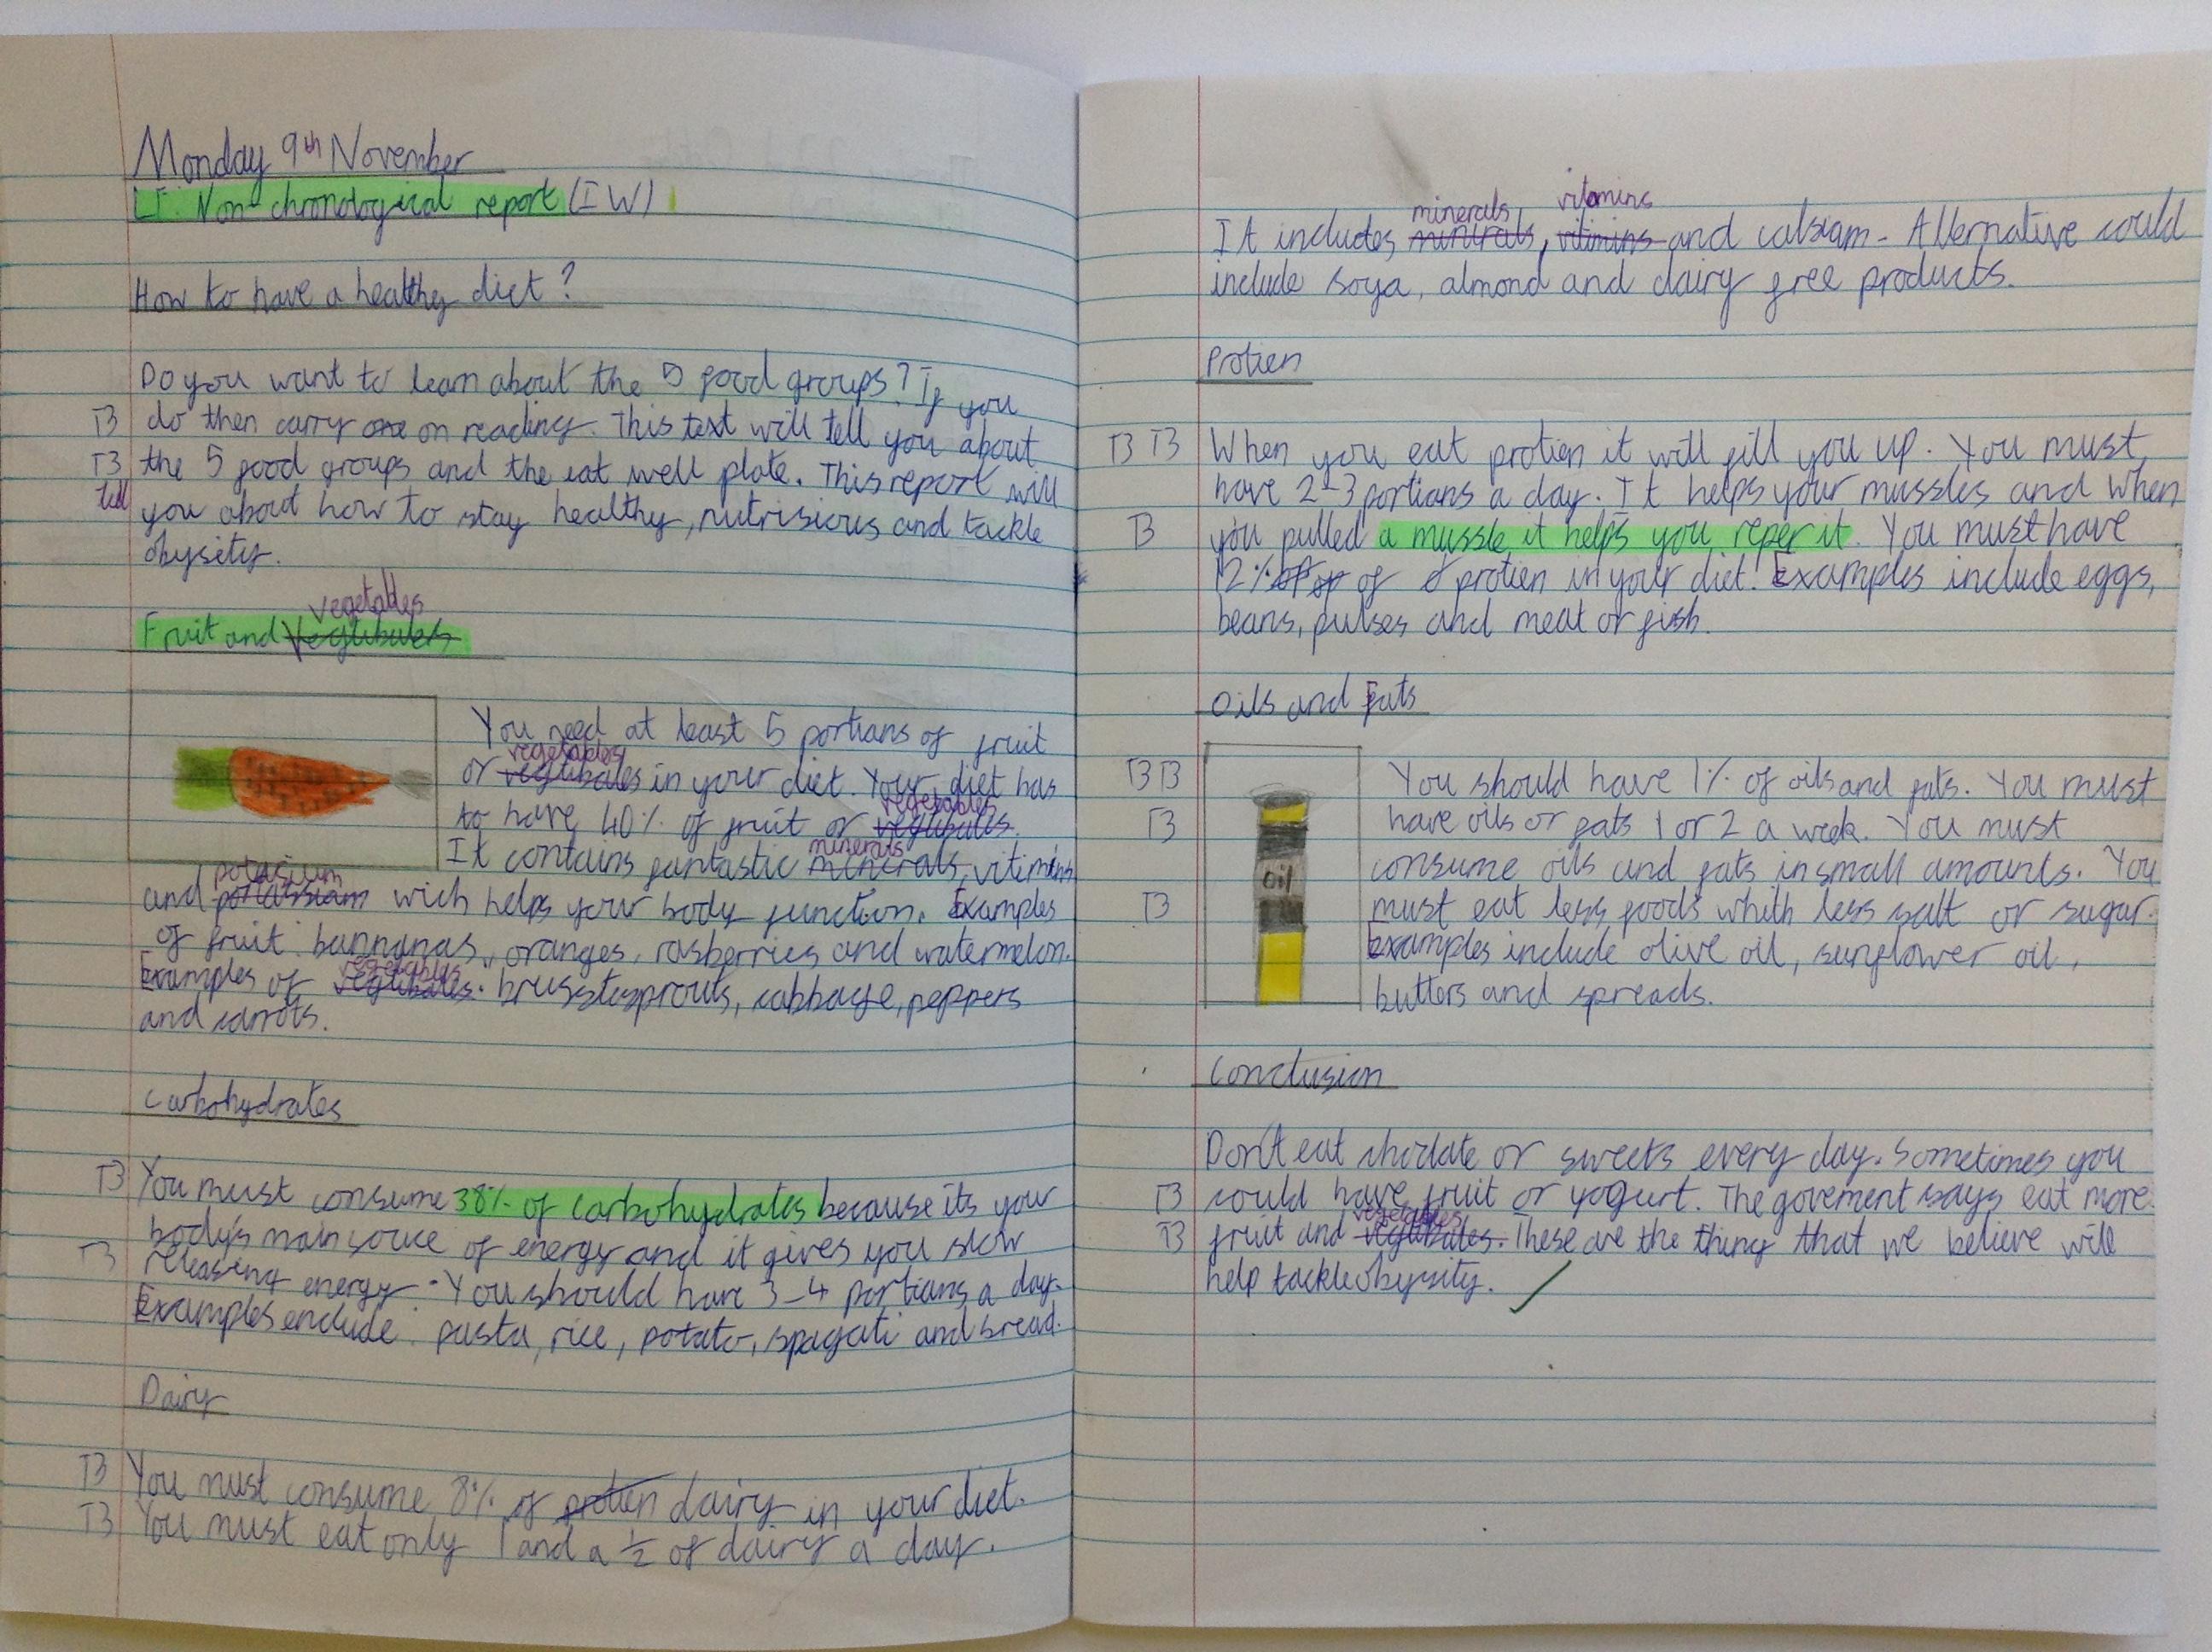 Monday 9th November
LI: Non-chronological report (IW)
How to have a healthy diet?
Do you want to learn about the 5 food groups? If you
T3 do then carry one on reading. This text will tell you about
T3 the 5 food groups and the eat well plate. This report will
tell you about how to stay healthy, nutrisious and tackle
obysity.
vegetables
Fruit and
You need at least 5 portians of fruit
vegetables
or vegtibales in your diet. Your diet has
vegetables
to have 40% of fruit or vegtibales.
minerals
It contains fantastic minerals, vitimins
potasium
and potassiam wich helps your body function. Examples
of fruit: bannanas, oranges, rasberries and watermelon.
vegetables
Examples of vegtibales: brusstosprouts, cabbage, peppers
and carrots.
Carbohydrates
T3 You must consume 38% of carbohydrates because its your
body's main souce of energy and it gives you slow
T3 releasing energy. You should have 3-4 portians a day.
Examples enclude: pasta, rice, potato, spagati and bread.
Dairy
T3 You must consume 8% of protien dairy in your diet.
T3 You must eat only 1 and a ½ of dairy a day.
minerals vitamins
It includes minirals, vitimins and calsiam. Alternative could
include soya, almond and dairy free products.
Protien
T3 T3 When you eat protien it will fill you up. You must
have 2-3 portians a day. It helps your mussles and when
T3 you pulled a mussle it helps you reper it. You must have
12% of of protien in your diet. Examples include eggs,
beans, pulses and meat or fish.
Oils and Fats
T3 T3 You should have 1% of oils and fats. You must
T3 have oils or fats 1 or 2 a week. You must
consume oils and fats in small amounts. You
oil
T3 must eat less foods whith less salt or sugar.
Examples include olive oil, sunflower oil,
butters and spreads.
Conclusion
Don't eat choclate or sweets every day. Sometimes you
T3 could have fruit or yogurt. The goverment says eat more
vegetables
T3 fruit and vegtibales. These are the thing that we believe will
help tackle obysity.